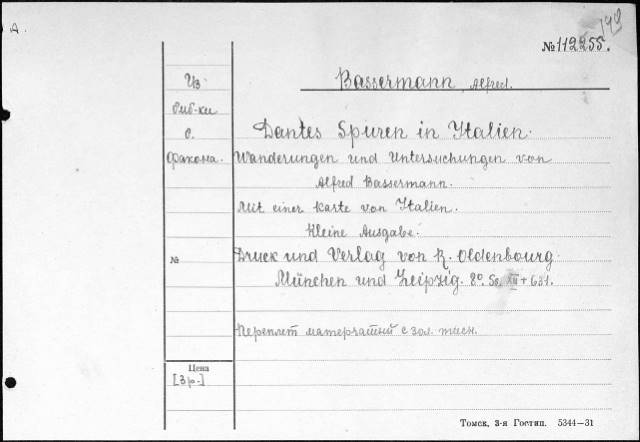 A.
198
№ 112255.
Bassermann, Alfred.
Из
биб-ки
о.
Факона.
Dantes Spuren in Italien.
Wanderungen und Untersuchungen von
Alfred Bassermann.
Mit einer Karte von Italien.
Kleine Ausgabe.
№
Druck und Verlag von R. Oldenbourg.
München und Leipzig. 8º. Ss. XII + 631.
Переплет матерчатый с зол. тисн.
Цена
[3р.-]
Томск, 3-я Гостип. 5344—31